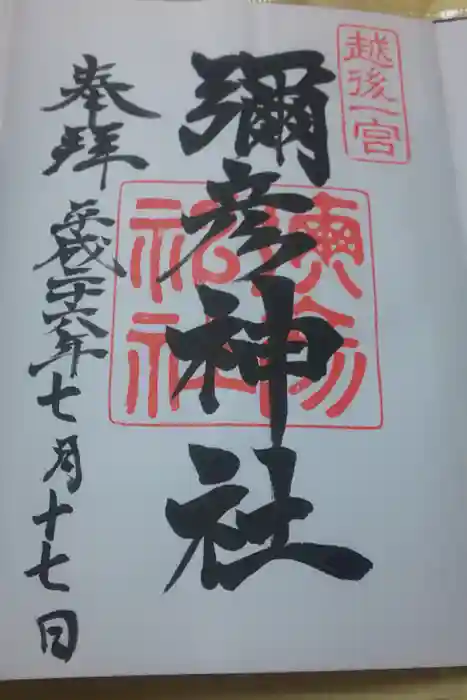 越後一宮
彌彦神社
奉拝
平成二十六年七月十七日